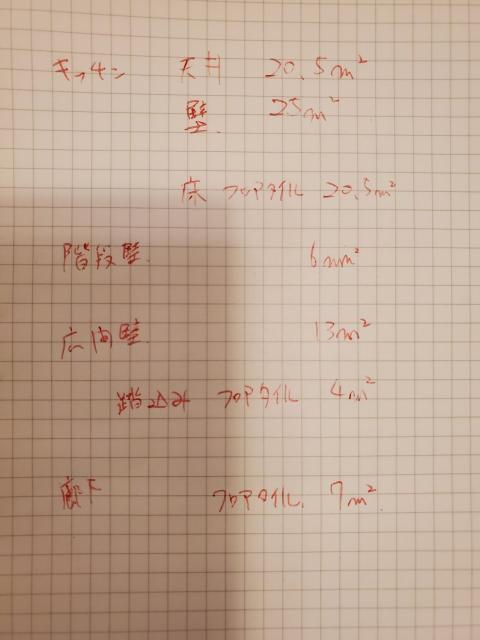 キッチン 天井 20.5m²
壁 25m²
床 フロアタイル 20.5m²
階段壁 6m²
広間壁 13m²
踏込み フロアタイル 4m²
廊下 フロアタイル 7m²